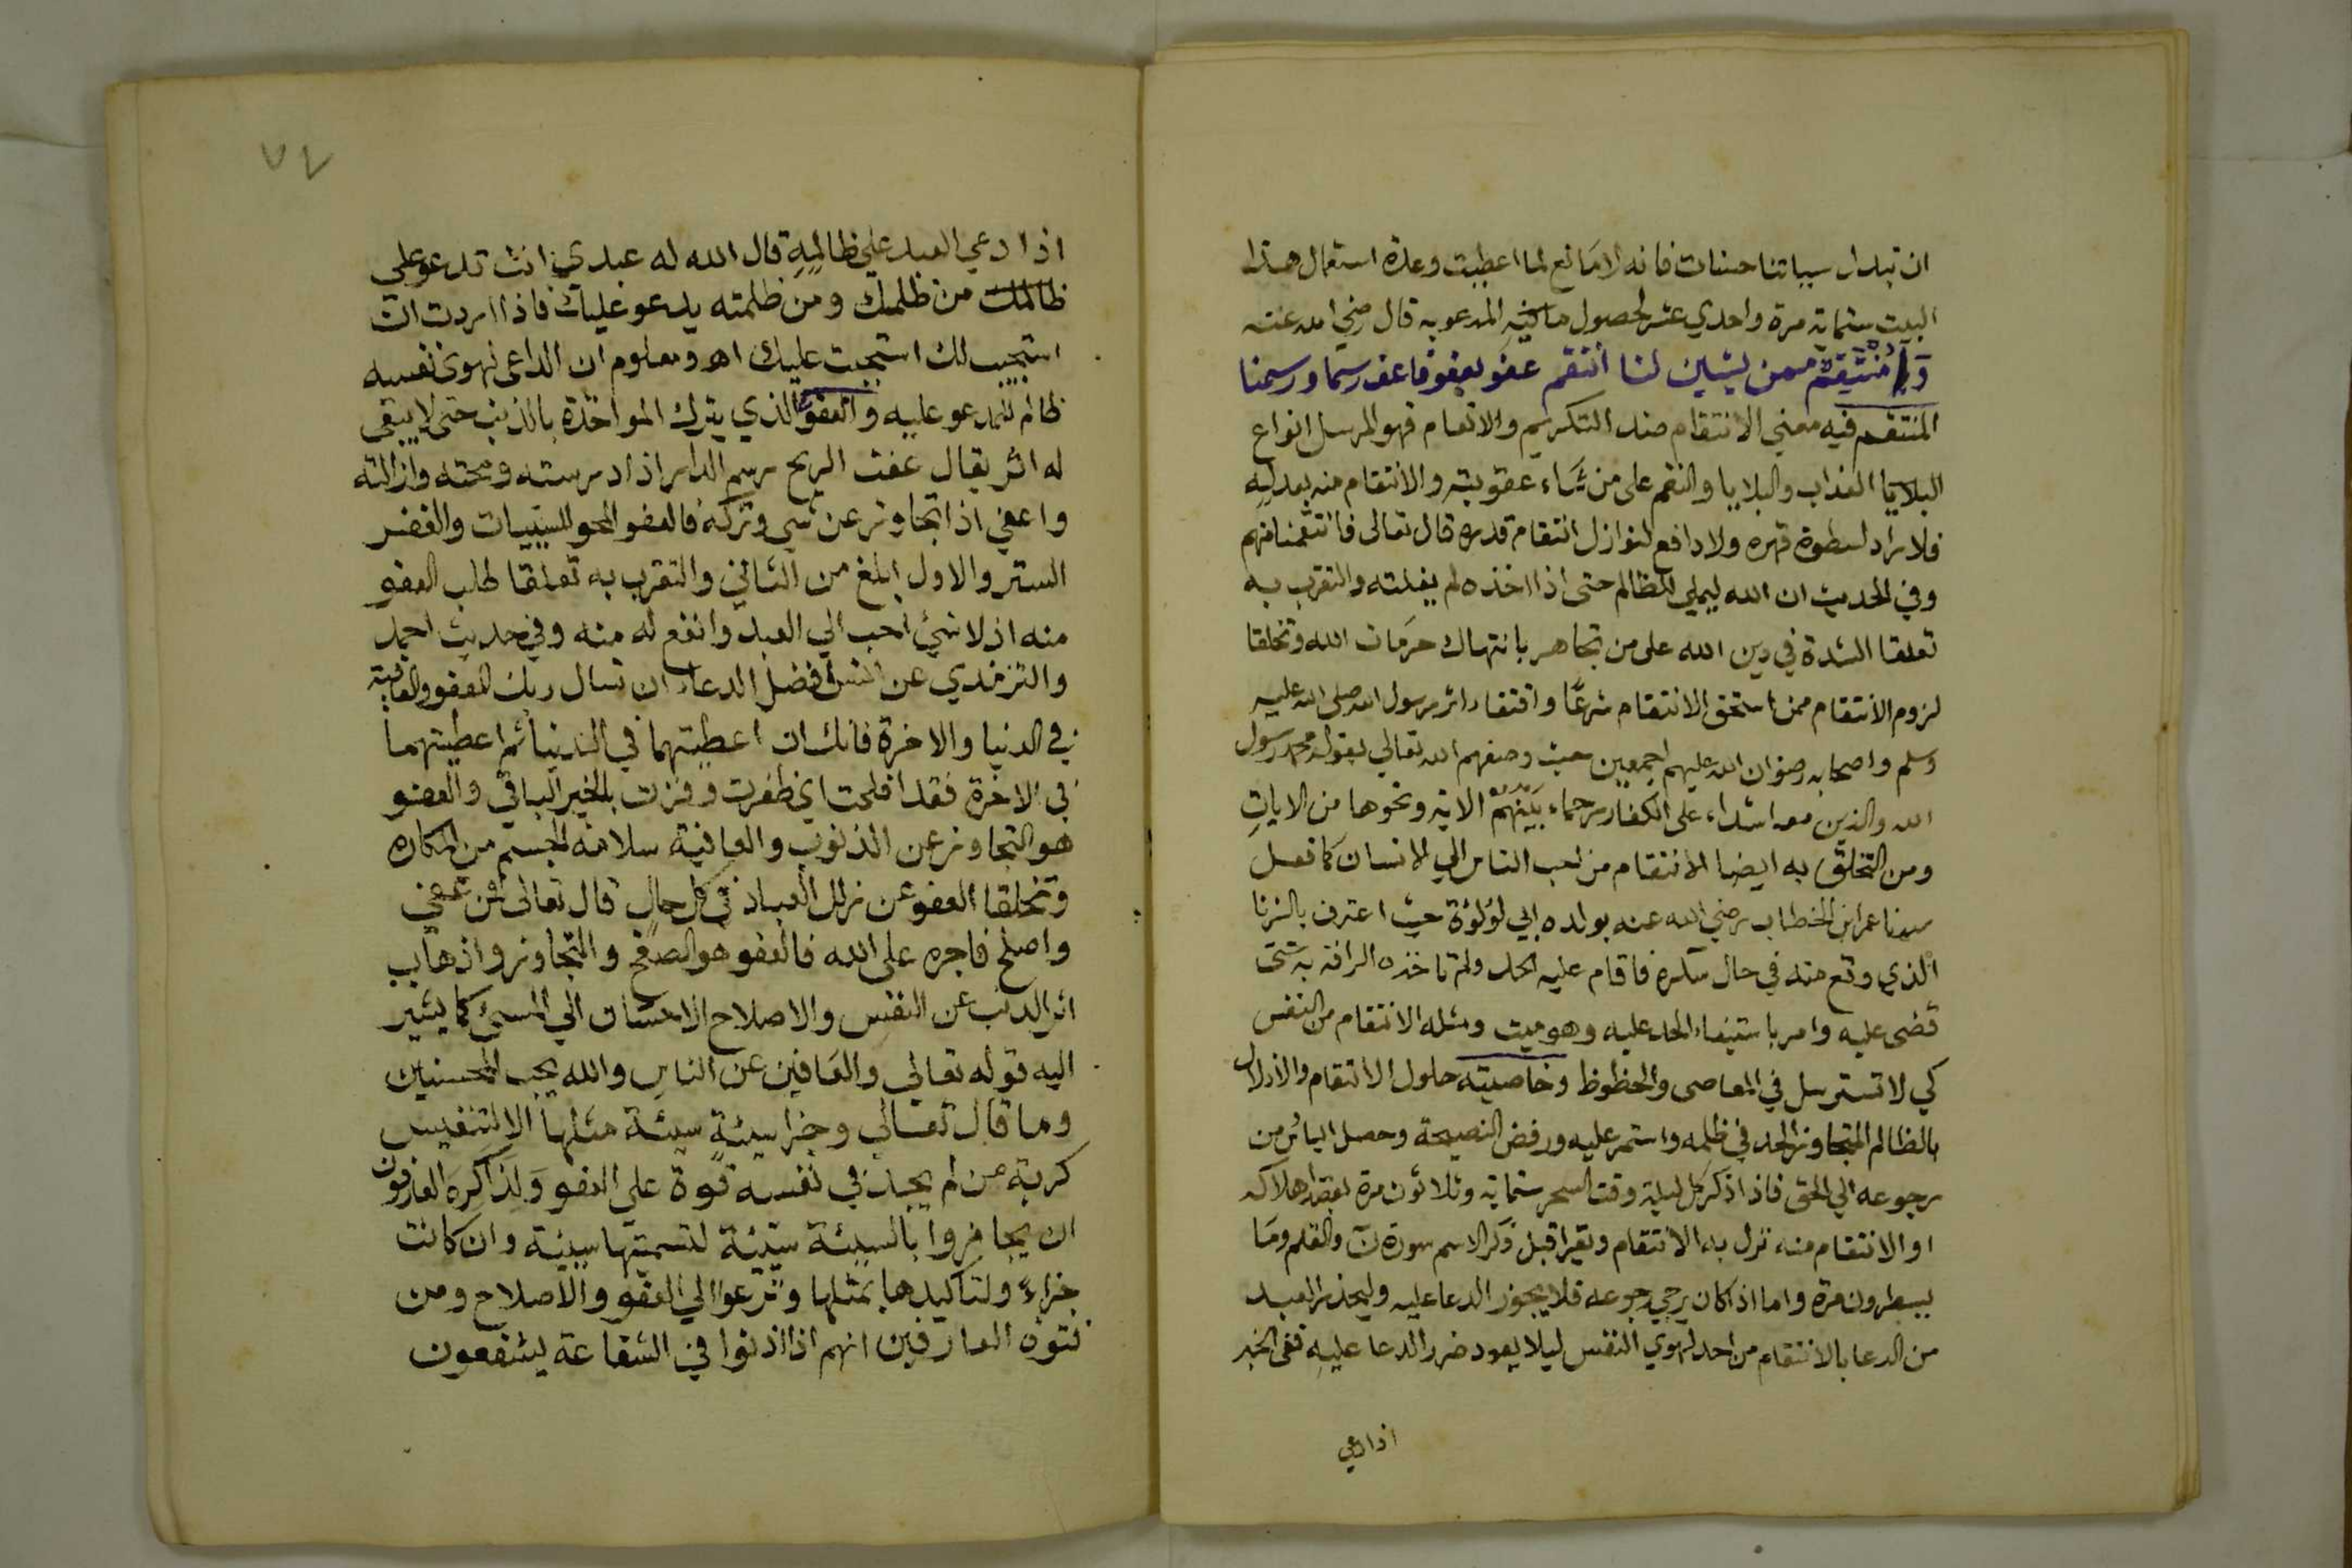 ان تبدل سيياتنا حسنات فانه لا مانع لما اعطيت وعدة استعمال هذا
البيت ستماية مرة واحدي عشر لحصول ما فيه المدعو به قال رضي الله عنه
ويا منتقم ممن يشين لنا انتقم عفو بعفو فاعف رسما ورسمنا
المنتقم فيه معني الانتقام ضد التكريم والانعام فهو المرسل انواع
البلايا العذاب والبلايا والنقم على من يشاء عقوبته والانتقام منه بعدله
فلا راد لسطوة قهره ولا دافع لنوازل انتقام قدره قال تعالى فانتقمنا منهم
وفي الحديث ان الله ليملي للظالم حتى اذا اخذه لم يفلته والتقرب به
تعلقا الشدة في دين الله على من تجاهر بانتهاك حرمات الله وتخلقا
لزوم الانتقام ممن استحق الانتقام شرعا واقتفاء اثر رسول الله صلى الله عليه
وسلم واصحابه رضوان الله عليهم اجمعين حيث وصفهم الله تعالي بقوله محمد رسول
الله والذين معه اشداء على الكفار رحماء بينهم الاية ونحوها من الايات
ومن التخلق به ايضا الانتقام من احب الناس الي الانسان كما فعل
سيدنا عمر ابن الخطاب رضي الله عنه بولده ابي لؤلؤة حيث اعترف بالزنا
الذي وقع منه في حال سكره فاقام عليه الحد ولم تاخذه الرافة به حتى
قضى عليه وامر باستيفاء الحد عليه وهو ميت ومثله الانتقام من النفس
كي لا تسترسل في المعاصى والحظوظ وخاصيته حلول الانتقام والاذلال
بالظالم المتجاوز الحد في ظلمه واستمر عليه ورفض النصيحة وحصل اليائس من
رجوعه الي الحق فاذا ذكر كل ليلة وقت السحر ستماية وثلاثون مرة بقصد اهلاكه
او الانتقام منه نزل به الانتقام وتقرا قبل ذكر الاسم سورة ن والقلم وما
يسطرون مرة واما اذا كان يرجي رجوعه فلا يجوز الدعا عليه وليحذر العبد
من الدعا بالانتقام من احد لهوي النفس ليلا يعود ضرر الدعا عليه ففى الخبر
اذا دعي
٧٤
اذا دعي العبد علي ظالمه قال الله له عبدي انت تدعو علي
ظالمك من ظلمك ومن ظلمته يدعو عليك فاذا اردت ان
استجيب لك استجبت عليك اه ومعلوم ان الداعى لهوى نفسه
ظالم للمدعو عليه والعفو الذي يترك المواخذة بالذنب حتى لا يبقى
له اثر يقال عفت الريح رسم الدار اذا درسته ومحته وازالته
واعفي اذا تجاوز عن شي وتركه فالعفو المحو للسييات والغفر
الستر والاول ابلغ من الثاني والتقرب به تعلقا طلب العفو
منه اذ لا شئ احب الي العبد وانفع له منه وفي حديث احمد
والترمذي عن انس افضل الدعاء ان تسال ربك العفو والعافية
في الدنيا والاخرة فانك ان اعطيتهما في الدنيا ثم اعطيتهما
في الاخرة فقد افلحت اي ظفرت وفزت بالخير الباقي والعفو
هو التجاوز عن الذنوب والعافية سلامة الجسم من المكاره
وتخلقا العفو عن زلل العباد في كل حال قال تعالى فمن عفي
واصلح فاجره على الله فالعفو هو الصفح والتجاوز واذهاب
اثر الذنب عن النفس والاصلاح الاحسان الي المسئ كما يشير
اليه قوله تعالي والعافين عن الناس والله يحب المحسنين
وما قال تعالي وجزا سيئة سيئة مثلها الا لتنفيس
كربة من لم يجد في نفسه قوة علي العفو ولذا كره العارفون
ان يجازوا بالسيئة سيئة لتسميتها سيئة وان كانت
جزاء ولتاكيدها بمثلها وترعوا الي العفو والاصلاح ومن
فتوة العارفين انهم اذا اذنوا في الشفاعة يشفعون